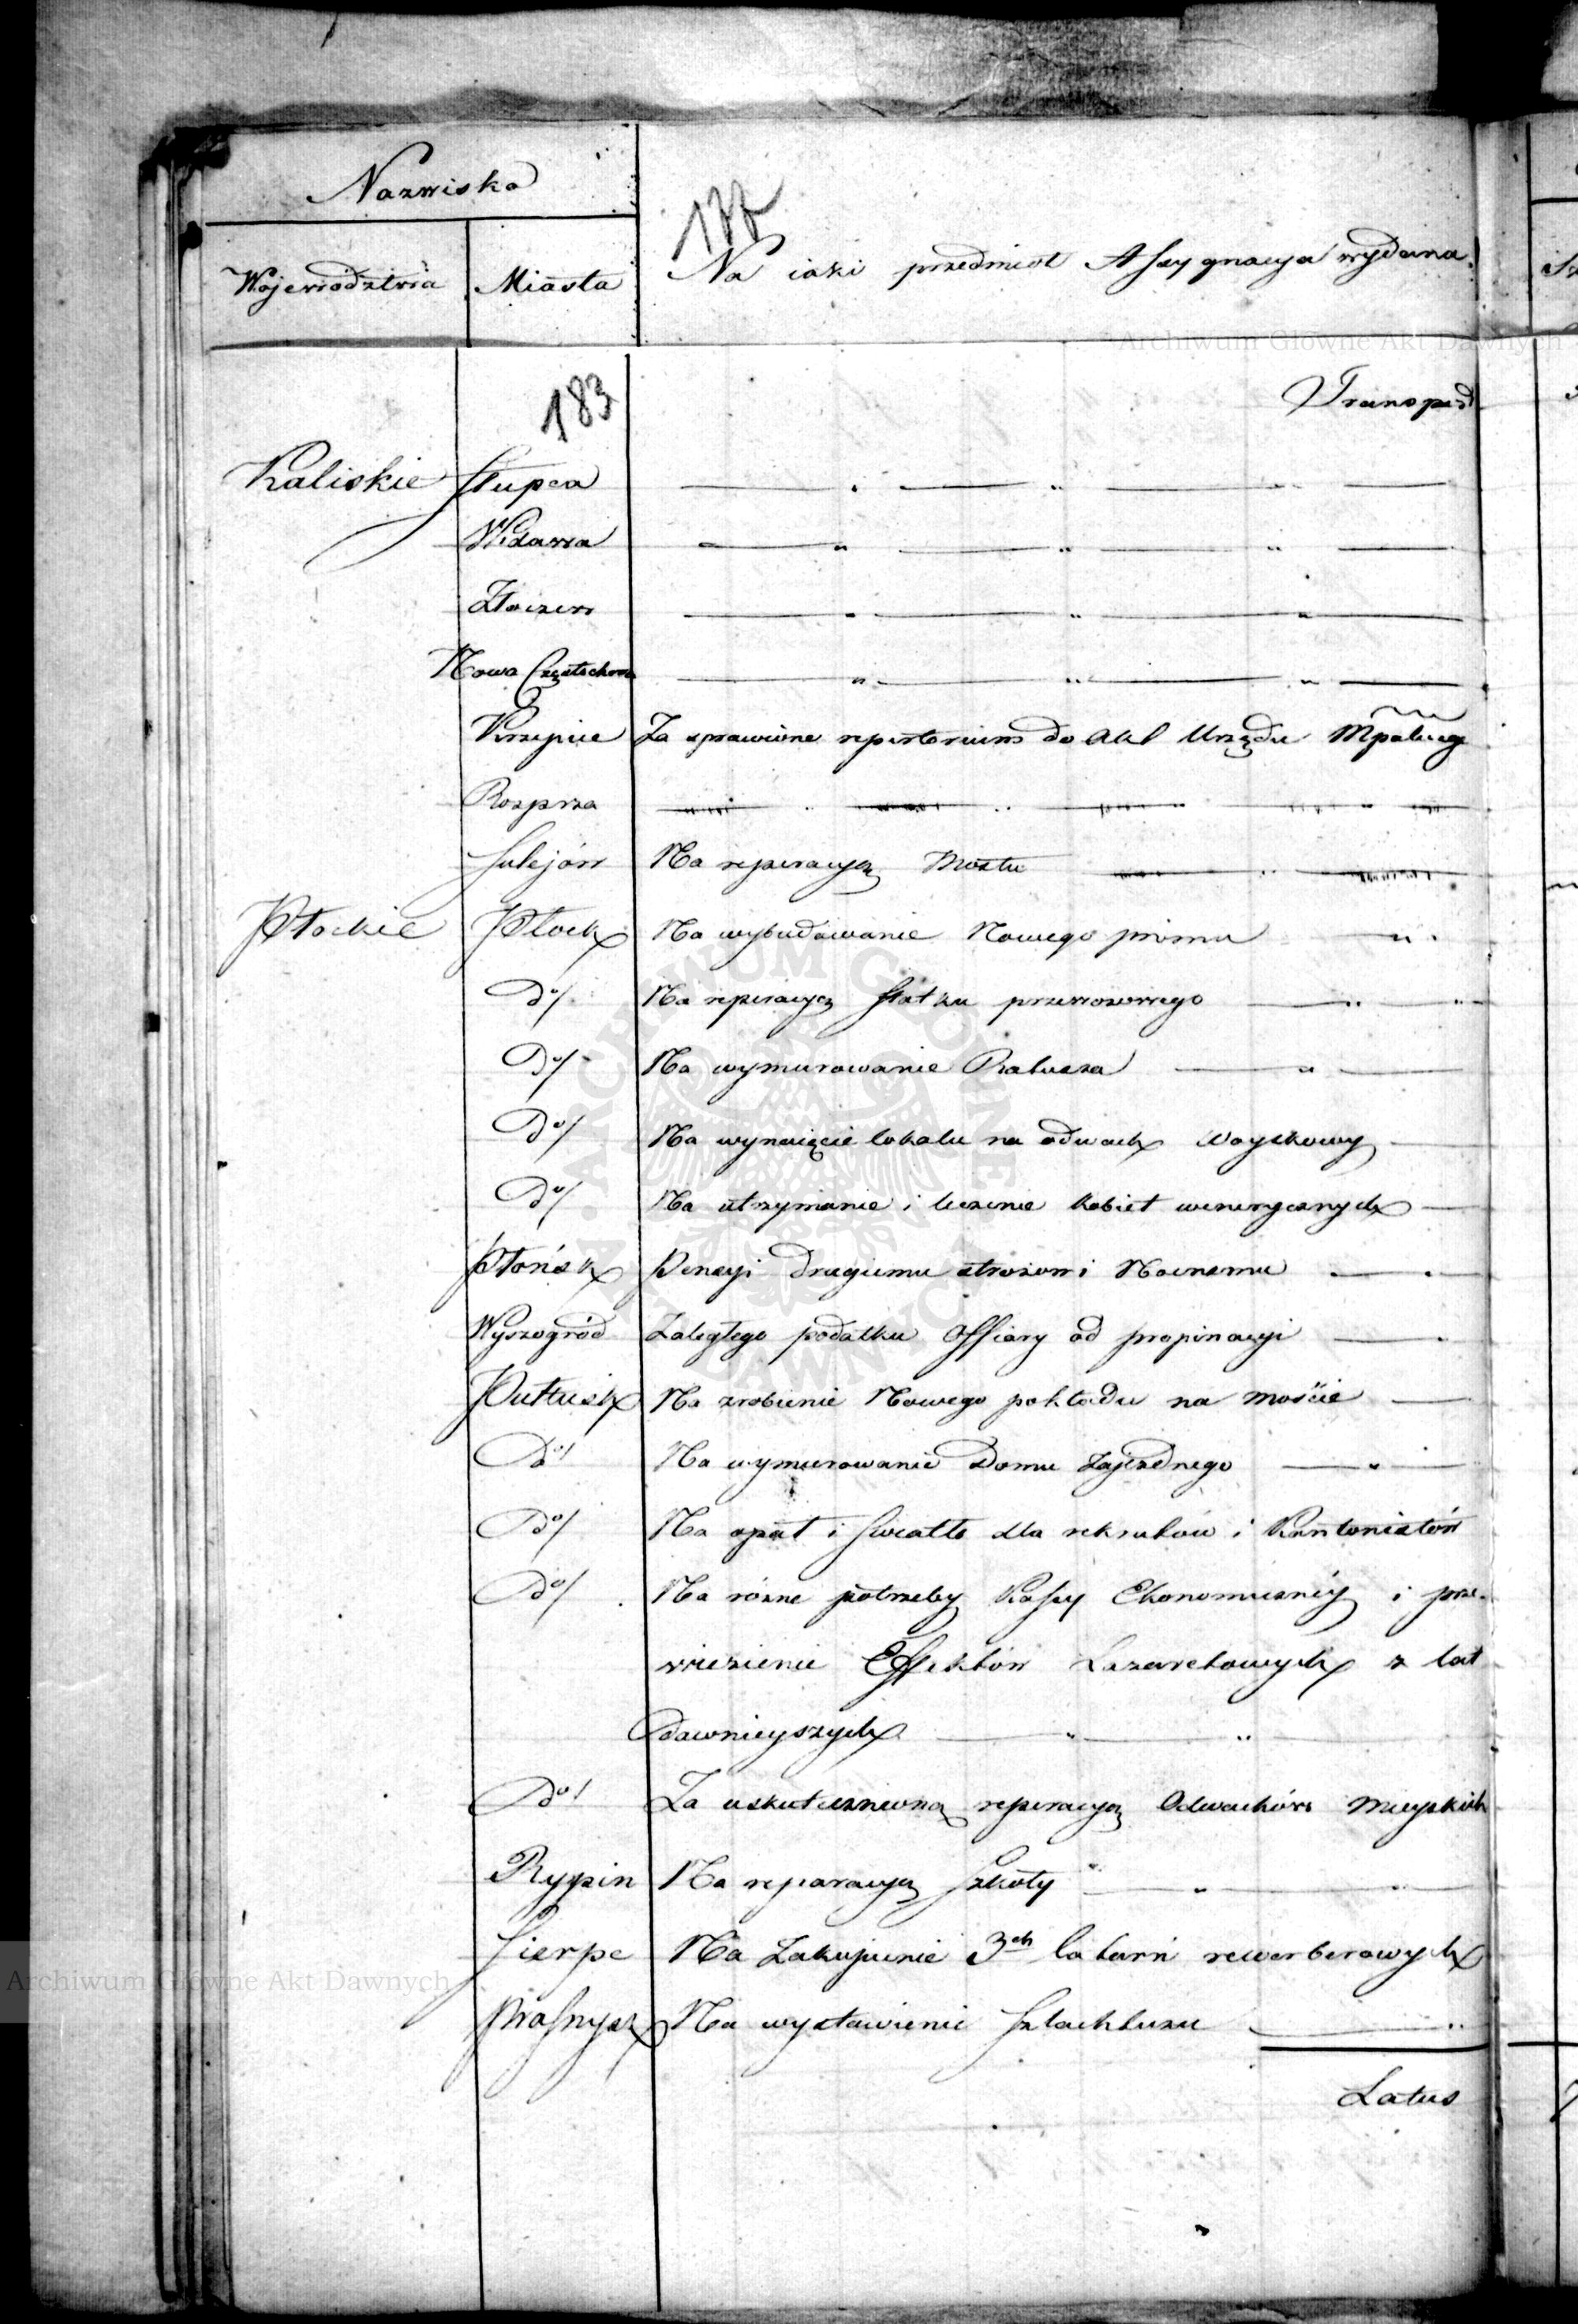 Nazwiska
177
Województwa Miasta Na iaki przedmiot Assygnacya wydana.
Transport
183
Kaliskie Słupca
Widawa
Złoczew
Nowa Częstochowa
Krzepice Za sprawione repertorium do Akt Urzędu Mpalneg
Rozprza
Sulejów Na reperacyą Mostu
Płockie Płock Na wybudowanie Nowego promu
Do/ Na reperacyą Statku przewozowego
Do/ Na wymurowanie Ratusza
Do/ Na wynaięcie lokalu na odwach Woyskowy
Do/ Na utrzymanie i leczenie kobiet wenerycznych
Płońsk Pensyi drugiemu stróżowi Nocnemu
Wyszogród Zaległego podatku Offiary od propinacyi
Pułtusk Na zrobienie Nowego pokładu na moście
Do/ Na wymurowanie Domu Zajezdnego
Do/ Na opał i Swiatło dla rekrutów i Kantonistów
Do/ Na rózne potrzeby Kassy Ekonomicznéy i prze-
wiezienie Effektów Lazaretowych z lat
dawnieyszych
Do/ Za uskutecznioną reperacyą Odwachów Mieyskich
Rypin Na reparacyą Szkoły
Sierpc Na Zakupienie 3ch latarń rewerberowych
Prasnysz Na wystawienie Szlachtuzu
Latus
Archiwum Główne Akt Dawnych